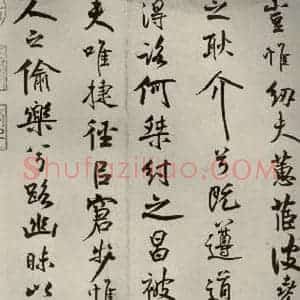 豈惟紉夫蕙茝彼
之耿介兮既遵道
得路何桀紂之昌被
夫唯捷徑㠯窘步惟
人之偷樂兮路幽昧以